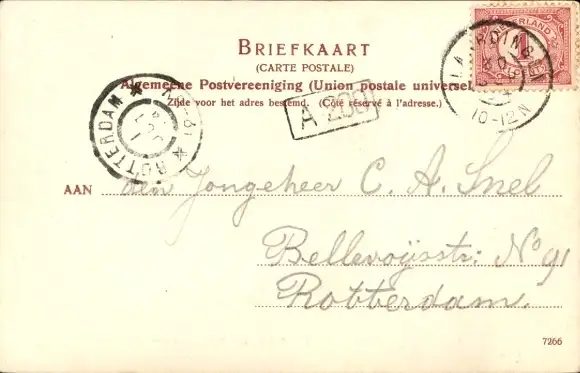 BRIEFKAART
(CARTE POSTALE)
Algemeene Postvereeniging (Union postale universelle)
Zijde voor het adres bestemd. (Côté réservé à l'adresse.)
NEDERLAND
1
10-12N
ROTTERDAM
ROTTERDAM
A 200
AAN den Jongeheer C. A. Snel
Bellevoijsstr: No 91
Rotterdam.
7266